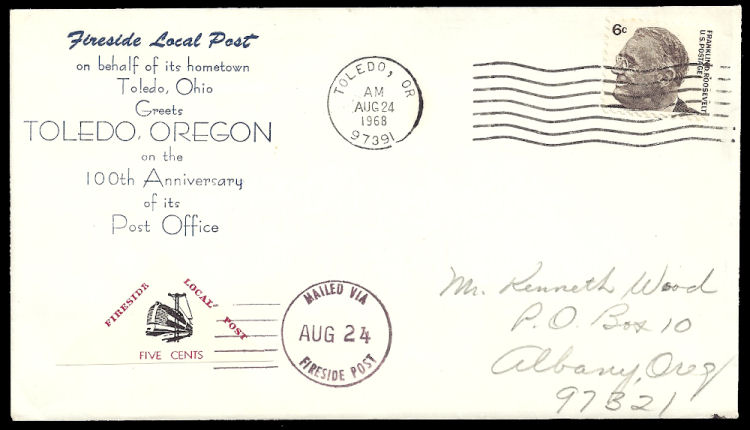 Fireside Local Post
on behalf of its hometown
Toledo, Ohio
Greets
TOLEDO, OREGON
on the
100th Anniversary
of its
Post Office
TOLEDO, OR
AM
AUG 24
1968
97391
6c
FRANKLIN D. ROOSEVELT
U.S. POSTAGE
FIRESIDE LOCAL POST
FIVE CENTS
MAILED VIA
AUG 24
FIRESIDE POST
Mr. Kenneth Wood
P.O. Box 10
Albany, Oreg
97321